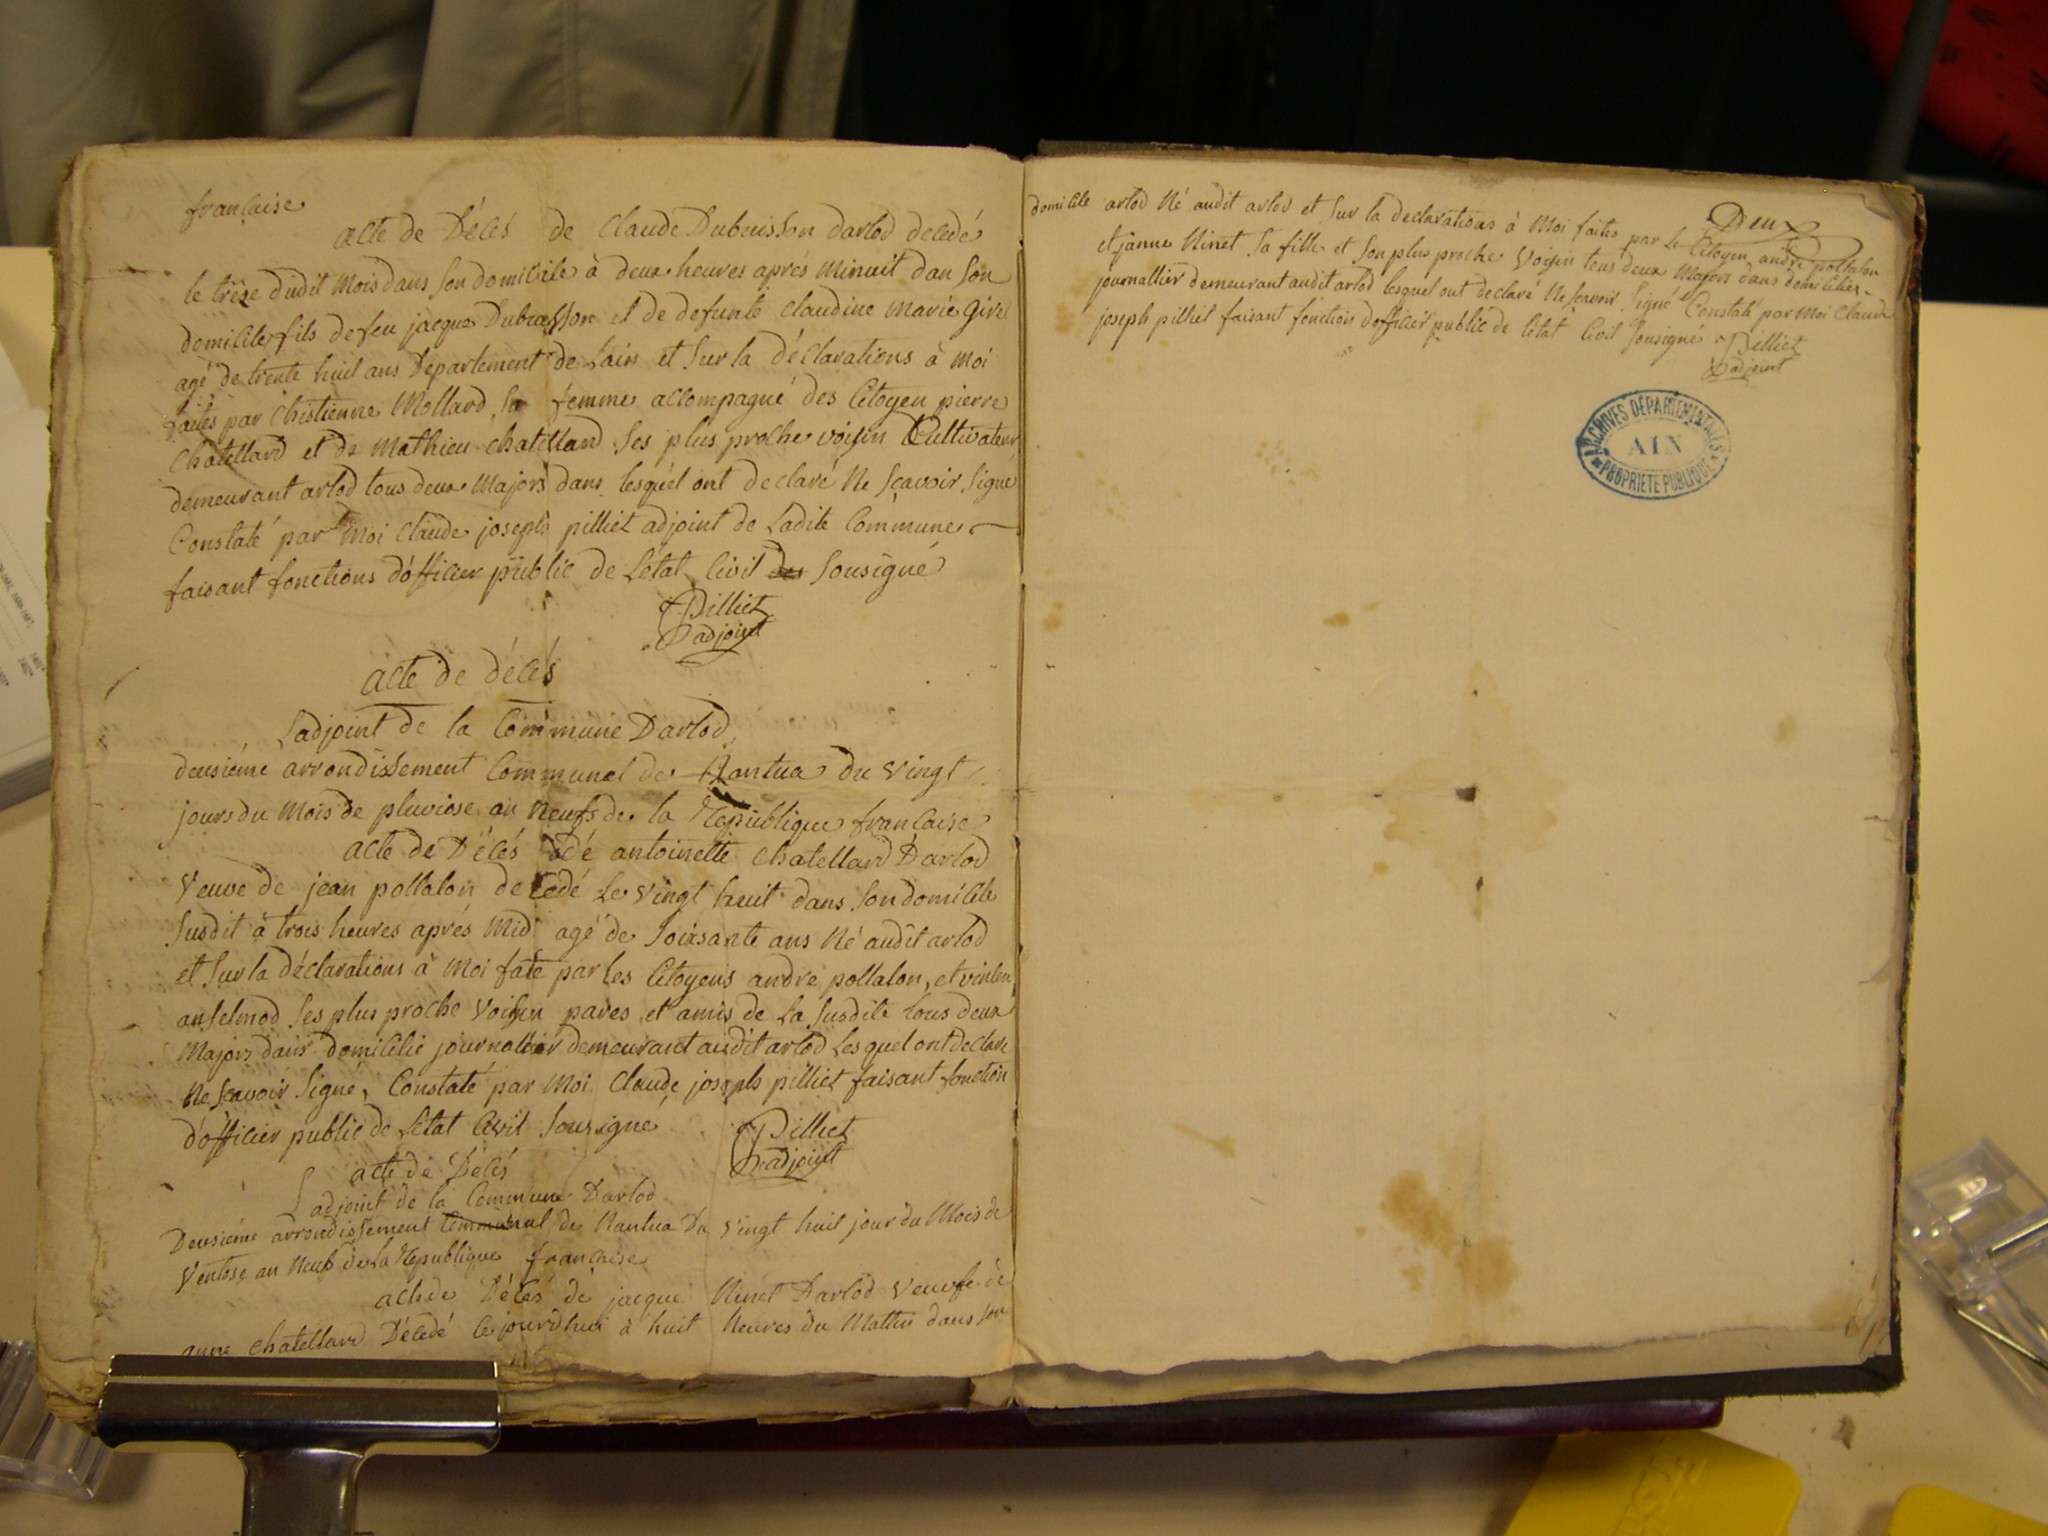 française
acte de Décés de Claude Dubuisson darlod decedé
le treize dudit Mois dans son domicile à deux heures aprés Minuit dan son
domicile fils de feu jacque Dubuisson et de defunte Claudine Marie
agé de trente huit ans Departement de Lain et sur la déclarations à Moi
faites par Chistienne Mollard sa femme accompagné des Citoyen pierre
Chatellard et de Mathieu Chatellard ses plus proche voisin Cultivateur
demeurant arlod tous deux Majors dans lesquel ont declaré Ne sçavoir signé
Constaté par Moi Claude joseph pilliet adjoint de Ladite Commune
faisant fonctions d'officier public de Létat Civil sousigné
Pilliet
adjoint
acte de décés
Ladjoint de la Commune Darlod
deusiéme arrondissement Communal de Nantua du vingt
jours du Mois de pluviose an Neufs de la Republique francaise
acte de Décés dé antoinette Chatellard Darlod
veuve de jean pollalon decedé Le vingt huit dans son domicile
susdit à trois heures aprés Midi agé de soixsante ans Né audit arlod
et sur la déclarations à Moi faite par Les Citoyens andre pollalon, et vinlen
anselmod ses plus proche voisin pares et amis de La susdite tous deux
Majors dans domicilié journallier demeurant audit arlod Lesquel ont declaré
Ne sçavoir signé, Constaté par Moi Claude joseph pilliet faisant fonction
d'officier public de Létat Civil sousigné
Pilliet
adjoint
acte de Décés
Ladjoint de la Commune Darlod
Deusiéme arrondissement Communal de Nantua Du vingt huit jour du Mois de
Ventose an Neuf de La Republique française
acte de Décés de jacque Ninet Darlod veuf de
anne Chatellard Décedé cejourdhui à huit heures du Mattin dans son
Deux
domicile arlod Né audit arlod et sur la declarations à Moi faites par Le Citoyen andré pollalon
et janne Ninet sa fille et son plus proche voisin tous deux Majors dans domiciliés
journallier demeurant audit arlod lesquel ont declaré Ne sçavoir signé Constaté par Moi Claude
joseph pilliet faisant fonction dofficier public de Létat Civil sousigné
Pilliet
adjoint
ARCHIVES DÉPARTEMENTALES
AIN
PROPRIÉTÉ PUBLIQUE